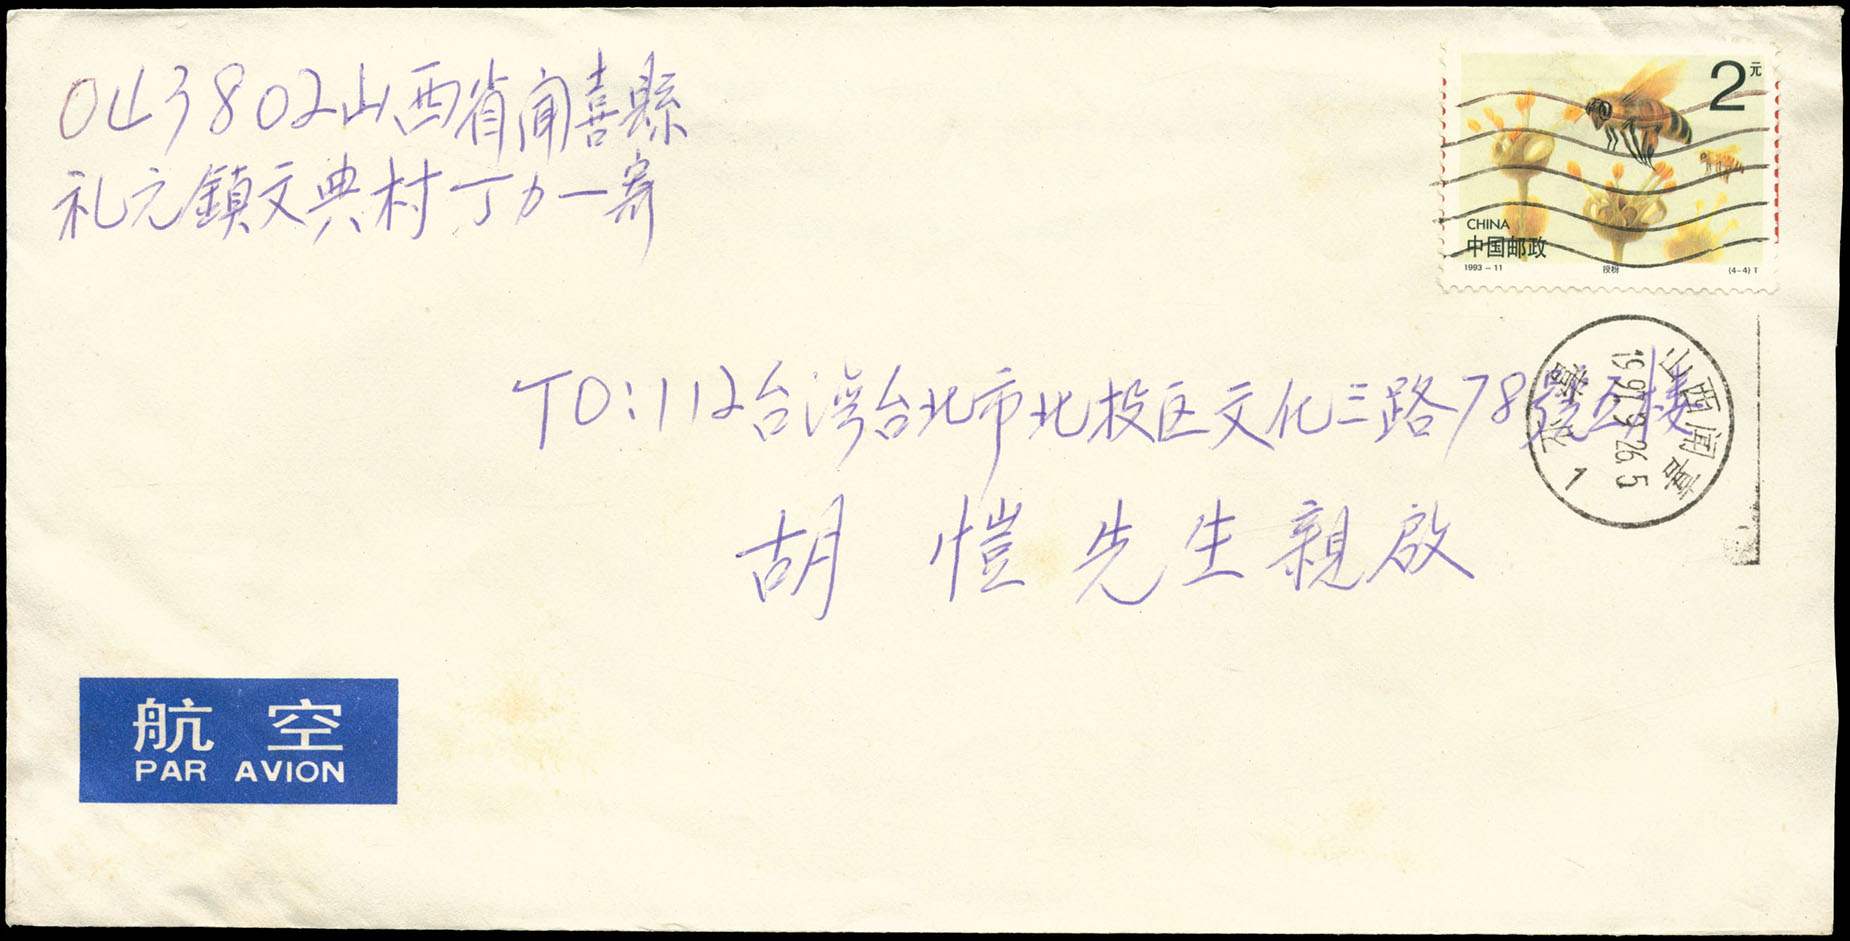 043802山西省闻喜縣
礼元鎮文典村丁力一寄
2元
CHINA
中国邮政
1993-11 授粉 (4-4) T
山西闻喜
1997.9.26.5
1
TO:112台湾台北市北投区文化三路78號五楼
胡愷先生親啟
航空
PAR AVION